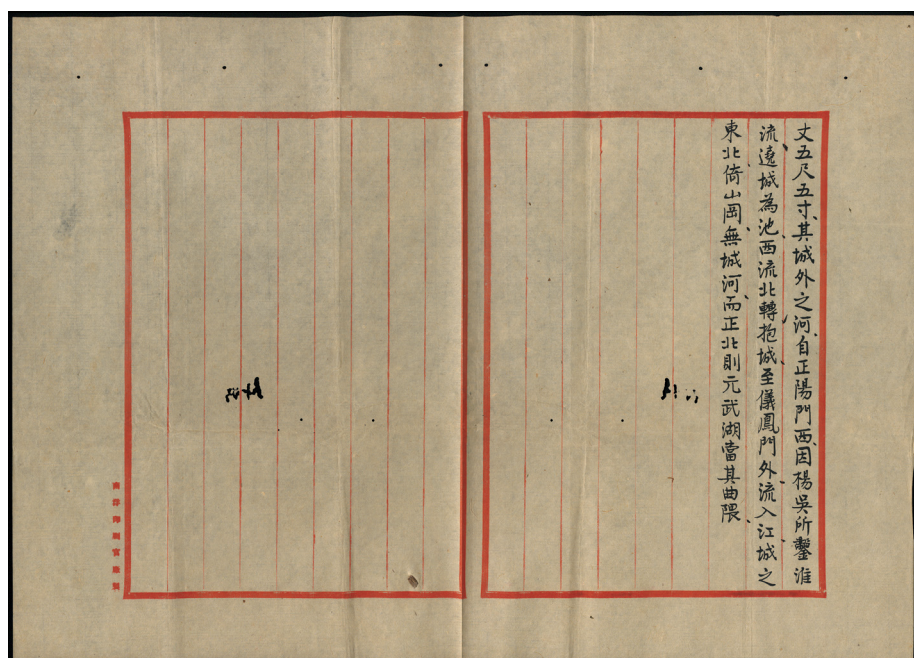 丈五尺五寸其城外之河自正陽門西因楊吳所鑿淮
流遶城為池西流北轉抱城至儀鳳門外流入江城之
東北倚山岡無城河而正北則元武湖當其曲隈